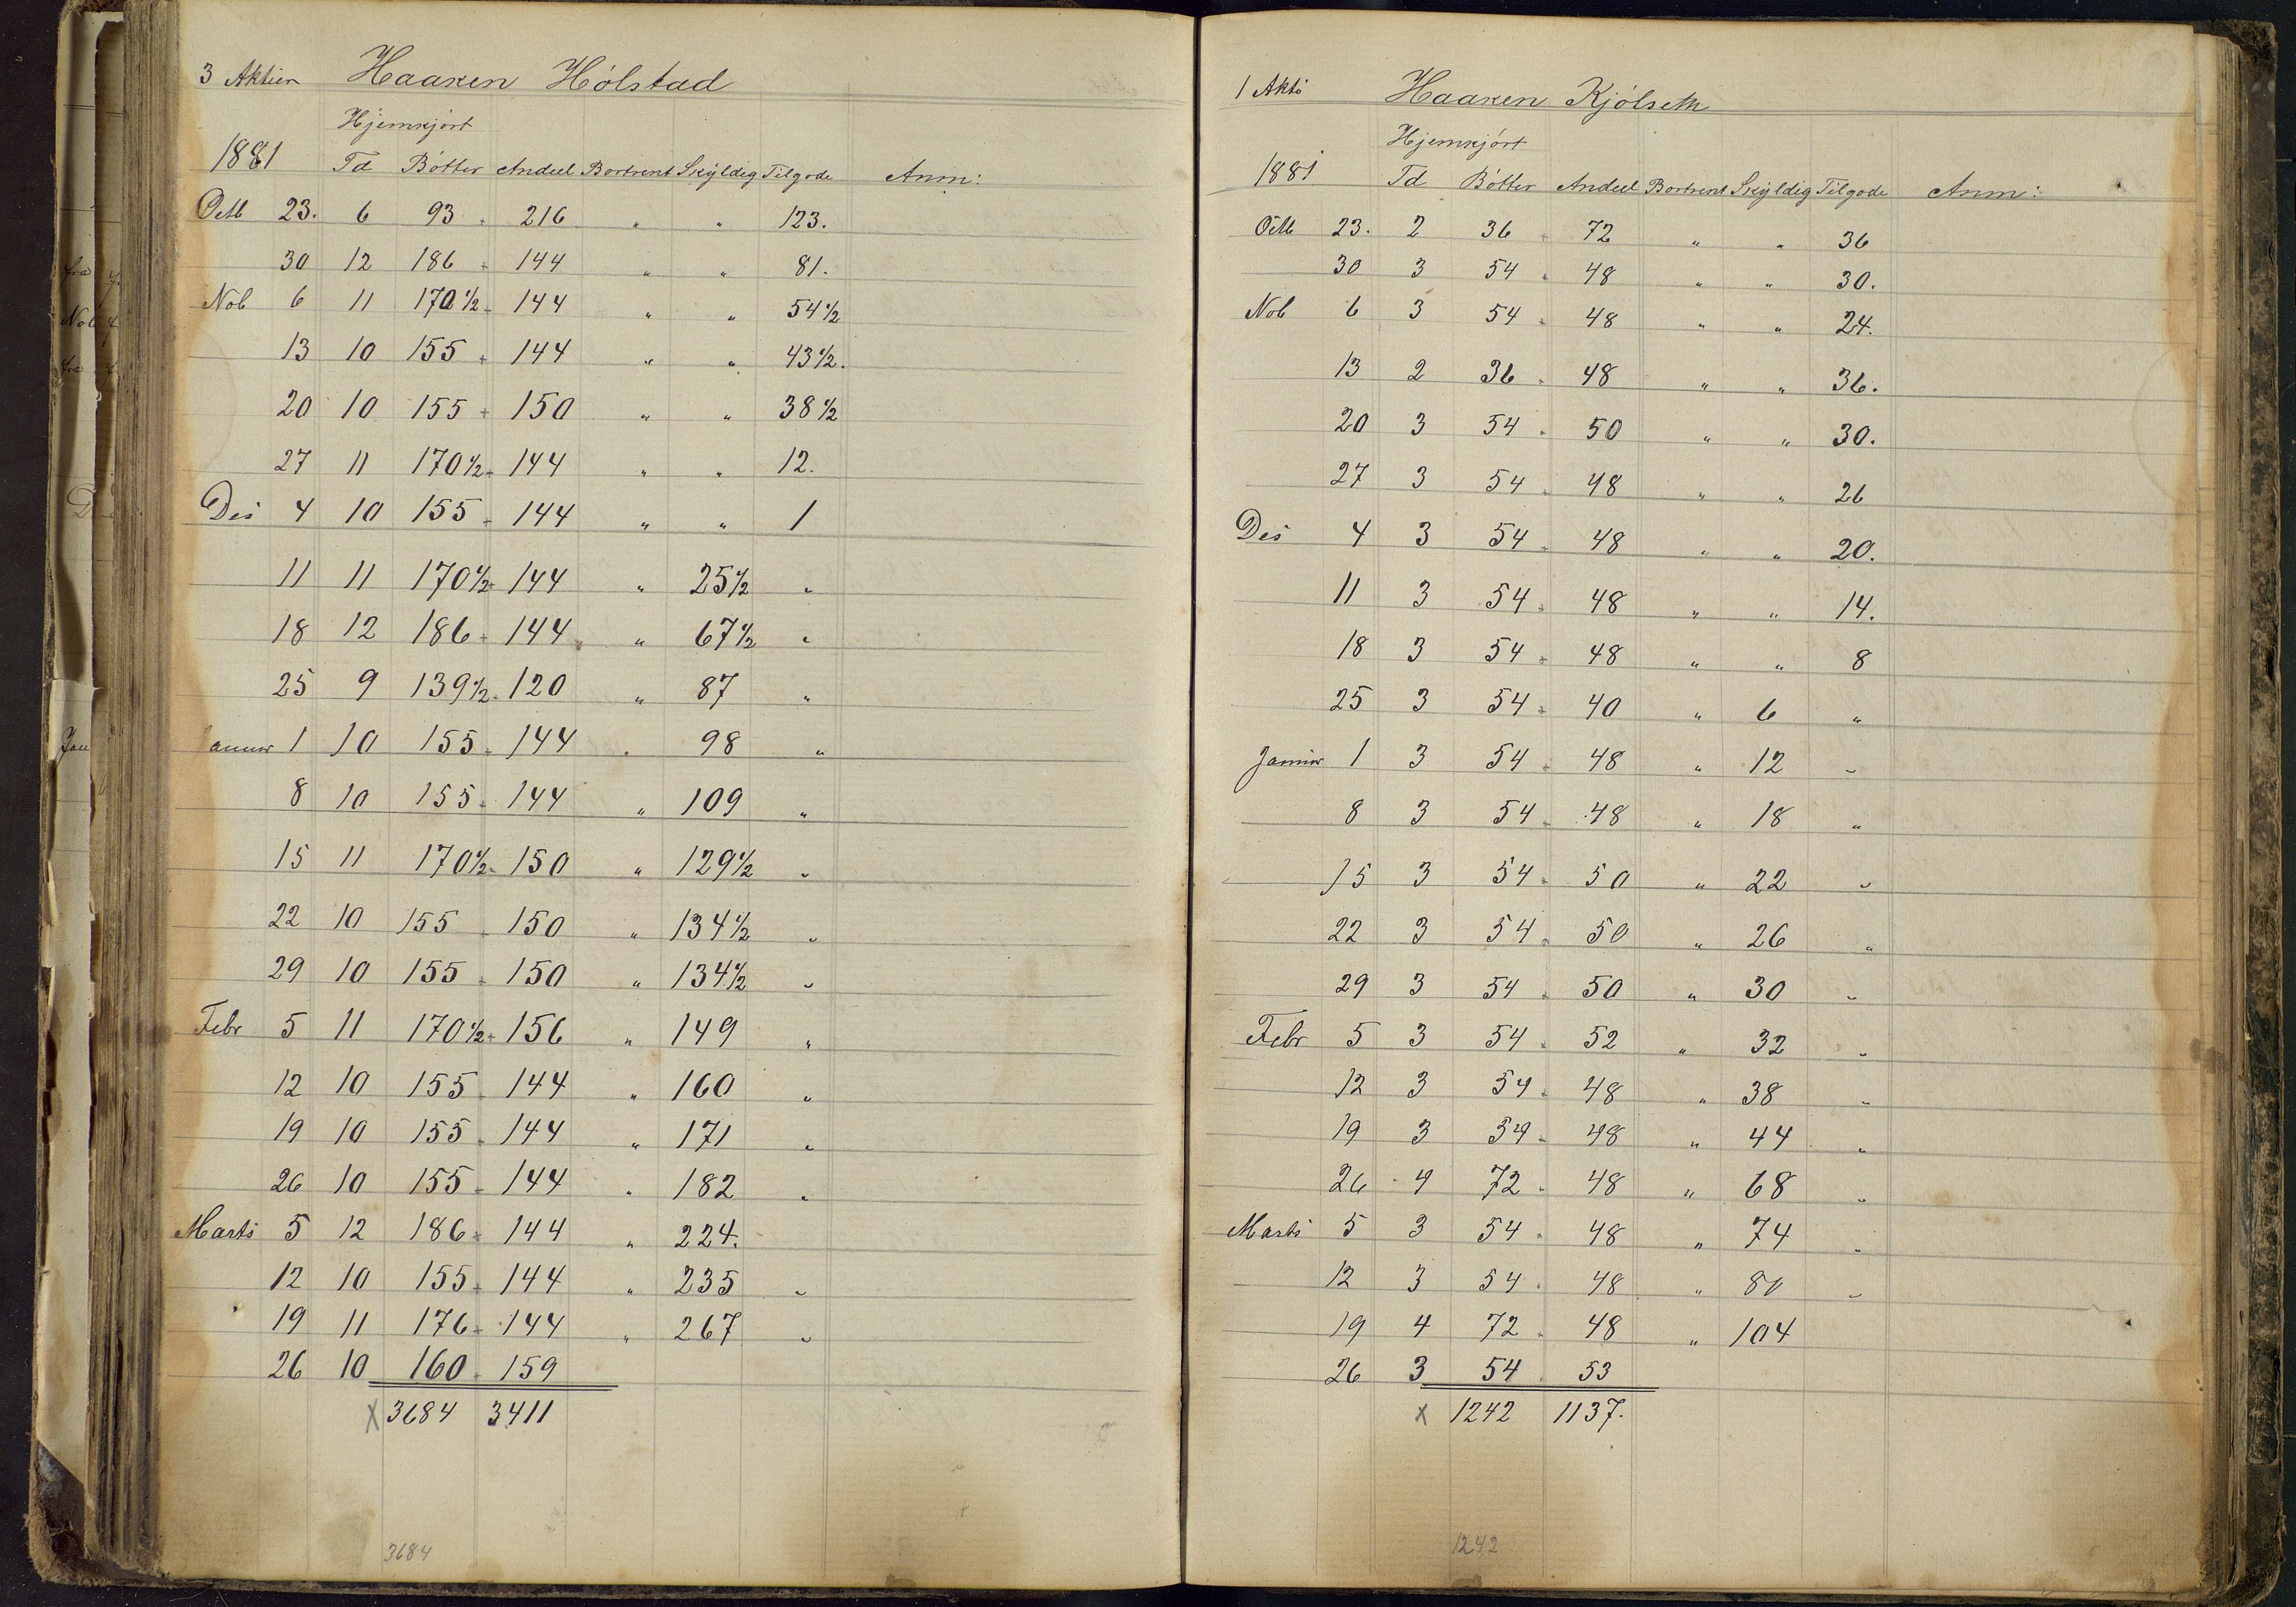 3 Aktier Haaken Hólstad
Hjemkjórt
1881 Td Bótter Andeel Bortrent Skÿldig Tilgode Anm:
Octb 23. 6 93 - 216 " " 123.
30 12 186 - 144 " " 81.
Nob 6 11 170½ - 144 " " 54½
13 10 155 - 144 " " 43½.
20 10 155 - 150 " " 38½
27 11 170½ - 144 " " 12.
Des 4 10 155 - 144 " " 1
11 11 170½ - 144 " 25½ "
18 12 186 - 144 " 67½ "
25 9 139½ - 120 " 87 "
Januar 1 10 155 - 144 " 98 "
8 10 155 - 144 " 109 "
15 11 170½ - 150 " 129½ "
22 10 155 - 150 " 134½ "
29 10 155 - 150 " 134½ "
Febr 5 11 170½ - 156 " 149 "
12 10 155 - 144 " 160 "
19 10 155 - 144 " 171 "
26 10 155 - 144 " 182 "
Marts 5 12 186 - 144 " 224.
12 10 155 - 144 " 235 "
19 11 176 - 144 " 267 "
26 10 160 - 159
x 3684 3411
3684
1 Akti Haaken Kjólseth
Hjemkjórt
1881 Td Bótter Andeel Bortrent Skÿldig Tilgode Anm:
Octb 23. 2 36 - 72 " " 36
30 3 54 - 48 " " 30.
Nob 6 3 54 - 48 " " 24.
13 2 36 - 48 " " 36.
20 3 54 - 50 " " 30.
27 3 54 - 48 " " 26
Des 4 3 54 - 48 " " 20.
11 3 54 - 48 " " 14.
18 3 54 - 48 " " 8
25 3 54 - 40 " 6 "
Januar 1 3 54 - 48 " 12 "
8 3 54 - 48 " 18 "
15 3 54 - 50 " 22 "
22 3 54 - 50 " 26 "
29 3 54 - 50 " 30 "
Febr 5 3 54 - 52 " 32 "
12 3 54 - 48 " 38 "
19 3 54 - 48 " 44 "
26 4 72 - 48 " 68 "
Marts 5 3 54 - 48 " 74 "
12 3 54 - 48 " 80 "
19 4 72 - 48 " 104
26 3 54 53
x 1242 1137.
1242